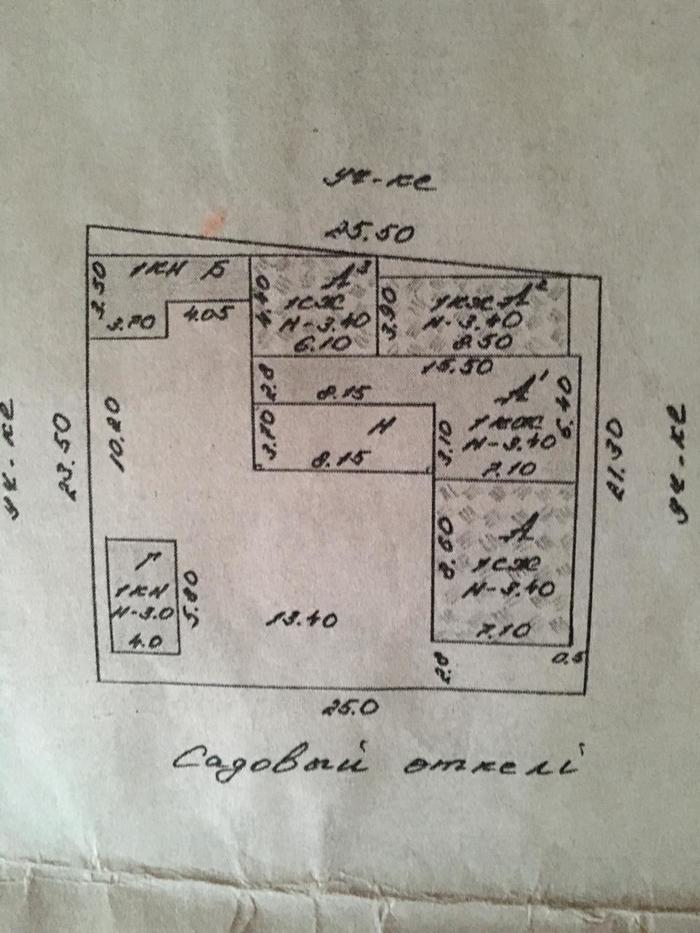 уч-ке
25.50
1КН Б
3.50
3.70
4.05
4.40
А³
1СЖ
Н-3.40
6.10
3.90
1КЖ А²
Н-3.40
8.50
15.50
2.8
8.15
А¹
Н-3.40
6.40
7.10
3.10
3.70
Н
8.15
уч-ке
23.50
10.20
21.30
уч-ке
8.60
А
1СЖ
Н-3.40
7.10
Г
1КН
Н-3.0
4.0
5.80
13.40
2.8
0.5
25.0
Садовый өткелі